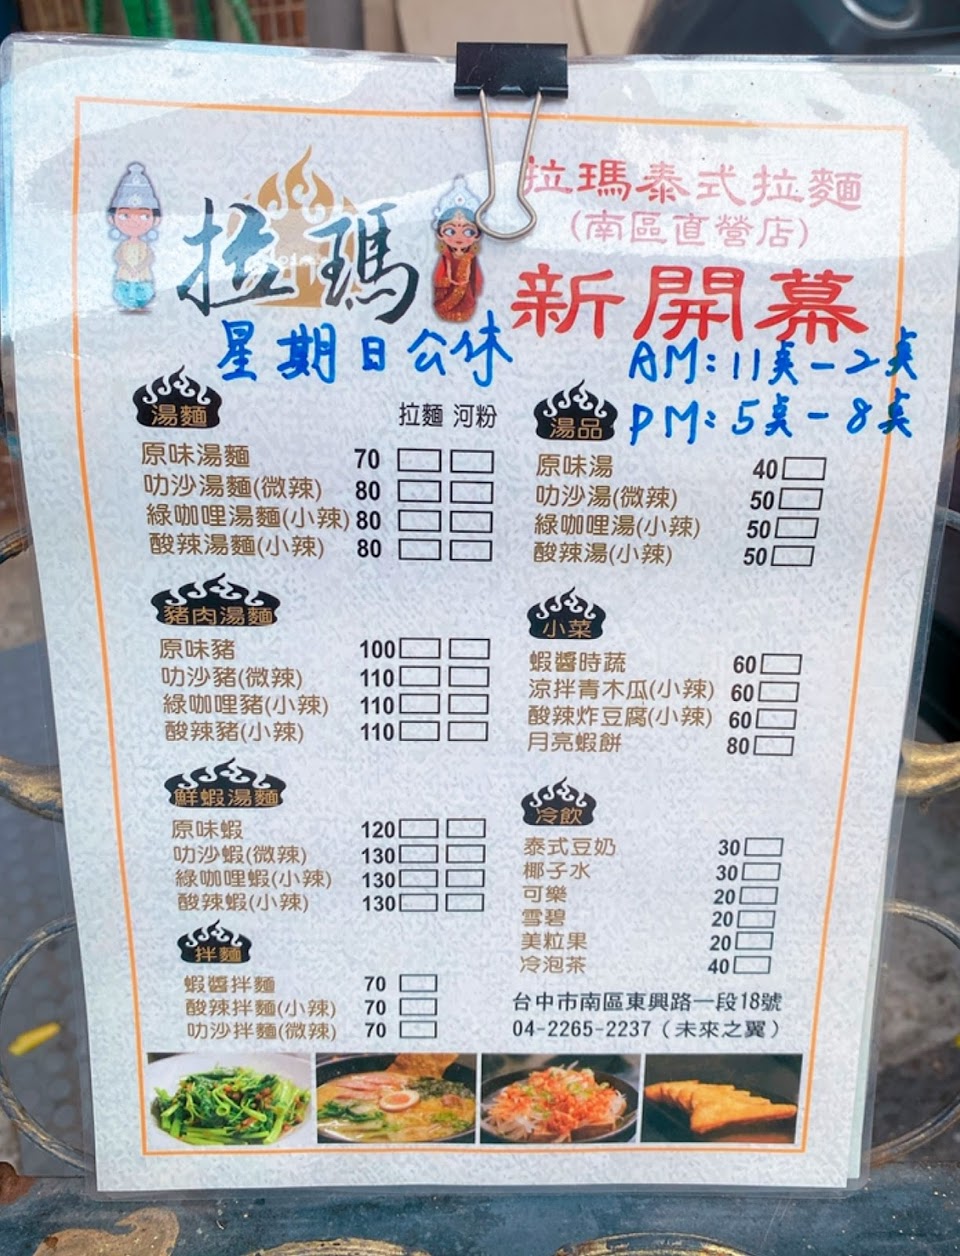 拉瑪
拉瑪泰式拉麵
(南區直營店)
新開幕
星期日公休
AM:11点-2点
PM:5点-8点
湯麵
拉麵 河粉
原味湯麵 70
叻沙湯麵(微辣) 80
綠咖哩湯麵(小辣) 80
酸辣湯麵(小辣) 80
豬肉湯麵
原味豬 100
叻沙豬(微辣) 110
綠咖哩豬(小辣) 110
酸辣豬(小辣) 110
鮮蝦湯麵
原味蝦 120
叻沙蝦(微辣) 130
綠咖哩蝦(小辣) 130
酸辣蝦(小辣) 130
拌麵
蝦醬拌麵 70
酸辣拌麵(小辣) 70
叻沙拌麵(微辣) 70
湯品
原味湯 40
叻沙湯(微辣) 50
綠咖哩湯(小辣) 50
酸辣湯(小辣) 50
小菜
蝦醬時蔬 60
涼拌青木瓜(小辣) 60
酸辣炸豆腐(小辣) 60
月亮蝦餅 80
冷飲
泰式豆奶 30
椰子水 30
可樂 20
雪碧 20
美粒果 20
冷泡茶 40
台中市南區東興路一段18號
04-2265-2237(未來之翼)